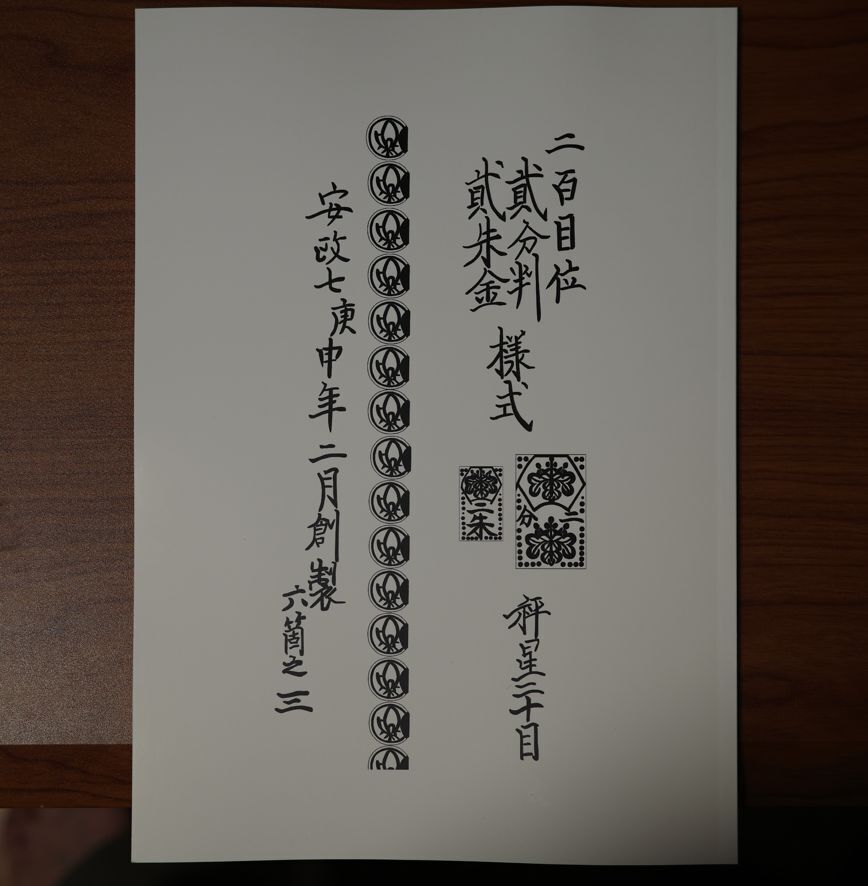 二百目位
貳分判
貳朱金
様式
二分
二朱
秤星三十目
安政七庚申年二月創製
六箇之三